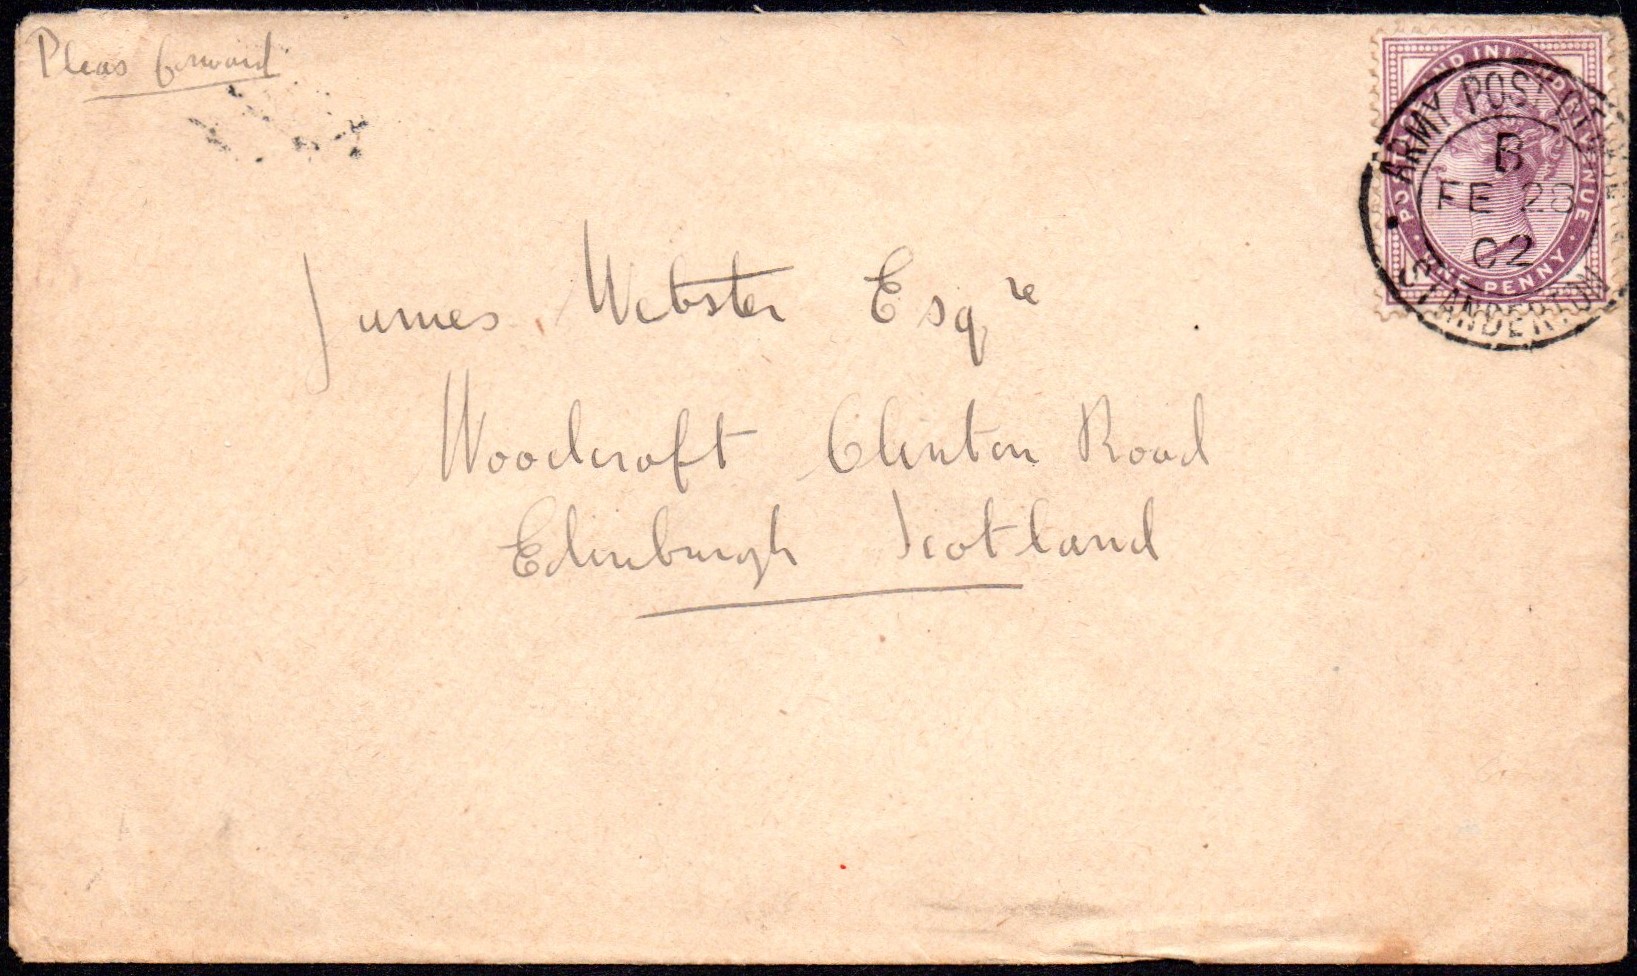 Pleas forward
POSTAGE AND INLAND REVENUE
ONE PENNY
ARMY POST OFFICE
B
FE 28
02
STANDERTON
James Webster Esqre
Woodcroft Clinton Road
Edinburgh Scotland